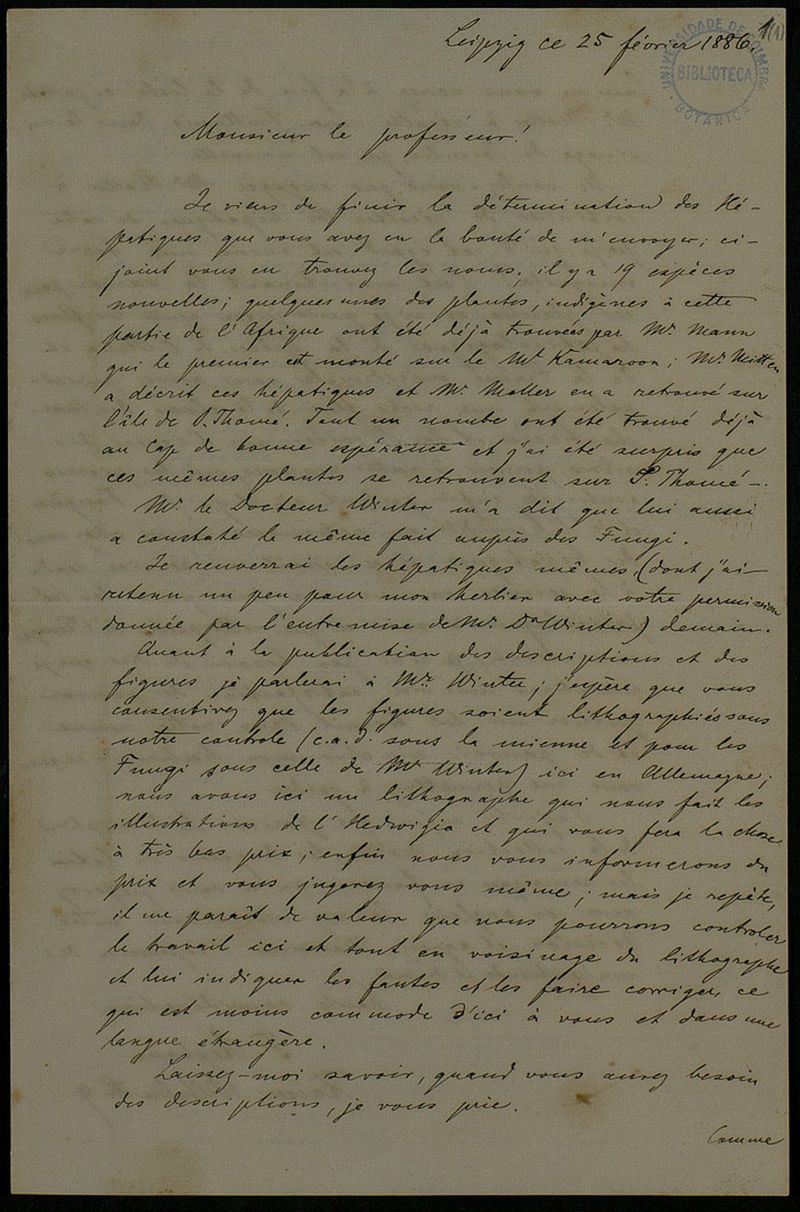 1(1)
UNIVERSIDADE DE COIMBRA
BIBLIOTECA
BOTANICA
Leipzig ce 25 février 1886.
Monsieur le professeur!
Je viens de finir la détermination des Hé-
patiques que vous avez eu la bonté de m'envoyer; ci-
joint vous en trouvez les noms, il y a 19 espèces
nouvelles; quelques unes des plantes, indigènes à cette
partie de l'Afrique ont été déjà trouvées par Mr. Mann
qui le premier est monté sur le Mt Kamaroon; Mr. Mitten
a décrit ces hépatiques et Mr. Moller en a retrouvé sur
l'île de S. Thomé. Tout un nombe ont été trouvé déjà
au Cap de bonne espérance et j'ai été surpris que
ces mêmes plantes se retrouvent sur S. Thomé –.
Mr. le Docteur Winter m'a dit que lui aussi
a constaté le même fait auprès des Fungi.
Je renverrai les hépatiques mêmes, (dont j'ai
retenu un peu pour mon herbier avec votre permission
donnée par l'entremise de Mr. Dr Winter) demain.
Quant à la publication des descriptions et des
figures je parlerai à Mr. Winter; j'espère que vous
consentirez que les figures soient lithographiés sous
notre controle (c.a.d. sous la mienne et pour les
Fungi sous celle de Mr Winter) ici en Allemagne;
nous avons ici un lithographe qui nous fait les
illustrations de l'Hedwigia et qui vous fera la chose
à très bas prix; enfin nous vous informerons du
prix et vous jugerez vous même; mais je repète,
il me paraît de valeur que nous pourrons controler
le travail ici et tout en voisinage du lithographe
et lui indiquer les fautes et les faire corriger, ce
qui est moins commode d'ici à vous et dans une
langue étrangère.
Laissez-moi savoir, quand vous aurez besoin
des descriptions, je vous prie.
Comme